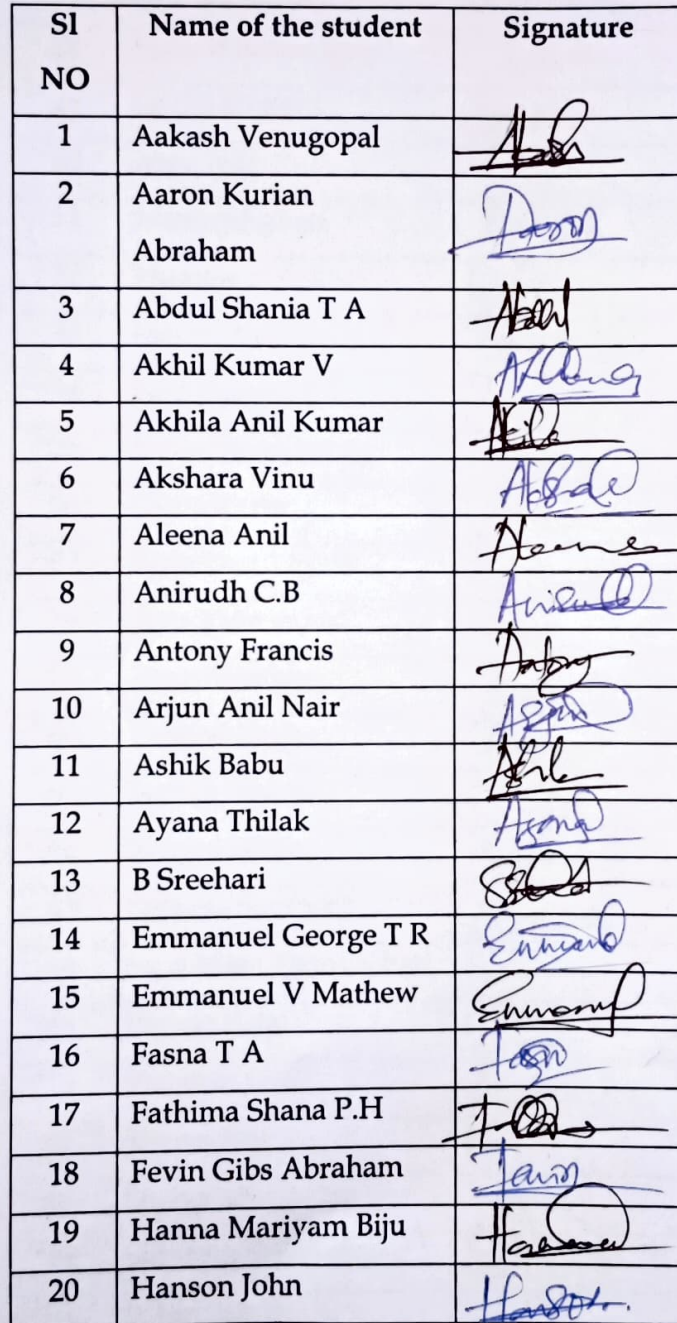 Sl Name of the student Signature
NO
1 Aakash Venugopal
2 Aaron Kurian Aaron
Abraham
3 Abdul Shania T A Abdul
4 Akhil Kumar V
5 Akhila Anil Kumar Akila
6 Akshara Vinu
7 Aleena Anil
8 Anirudh C.B Anirudh
9 Antony Francis Antony
10 Arjun Anil Nair Arjun
11 Ashik Babu
12 Ayana Thilak Ayana
13 B Sreehari
14 Emmanuel George T R
15 Emmanuel V Mathew
16 Fasna T A
17 Fathima Shana P.H
18 Fevin Gibs Abraham Fevin
19 Hanna Mariyam Biju
20 Hanson John Hanson